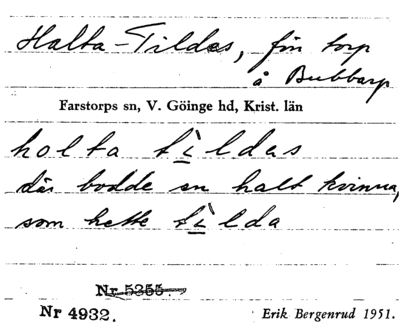 Halta-Tildas, förr torp
å Bubbarp
Farstorps sn, V. Göinge hd, Krist. län
halta tìldas
där bodde en halt kvinna,
som hette tìlda
Nr 5355.
Nr 4932.
Erik Bergenrud 1951.